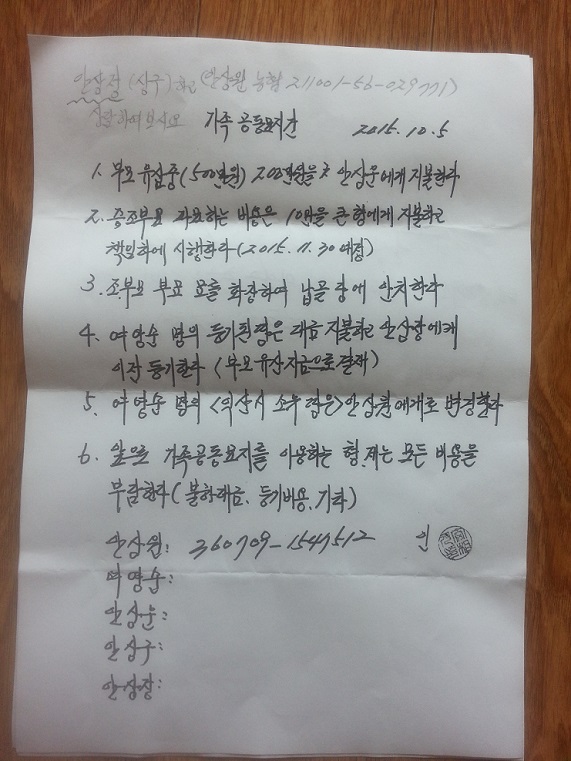 안상철 (상구) 하고 (안상원 농협 211001-56-029771)
상할하여보시요
가족 공동묘지간 2015.10.5
1. 부모 유산중 (500만원) 200만원을 안상운에게 지불한다
2. 증조부모 하는 비용은 10만을 큰형에게 지불하고
책임하에 시행한다 (2015.11.30 예정)
3. 조부모 부모 묘를 화장하여 납골당에 안치한다
4. 여영순 명의 등기된 땅은 대금 지불하고 안상장에게
이전등기한다 (부모유산자금으로결재)
5. 여영순 명의 <익산시 소유 >안상원에게로 변경한다
6. 앞으로 가족공동묘지를 이용하는 형.제는 모든 비용을
부담한다 (불하대금, 등기비용, 기타)
안상원: 360709-1547512 인
여영순:
안상운:
안상구:
안상장: